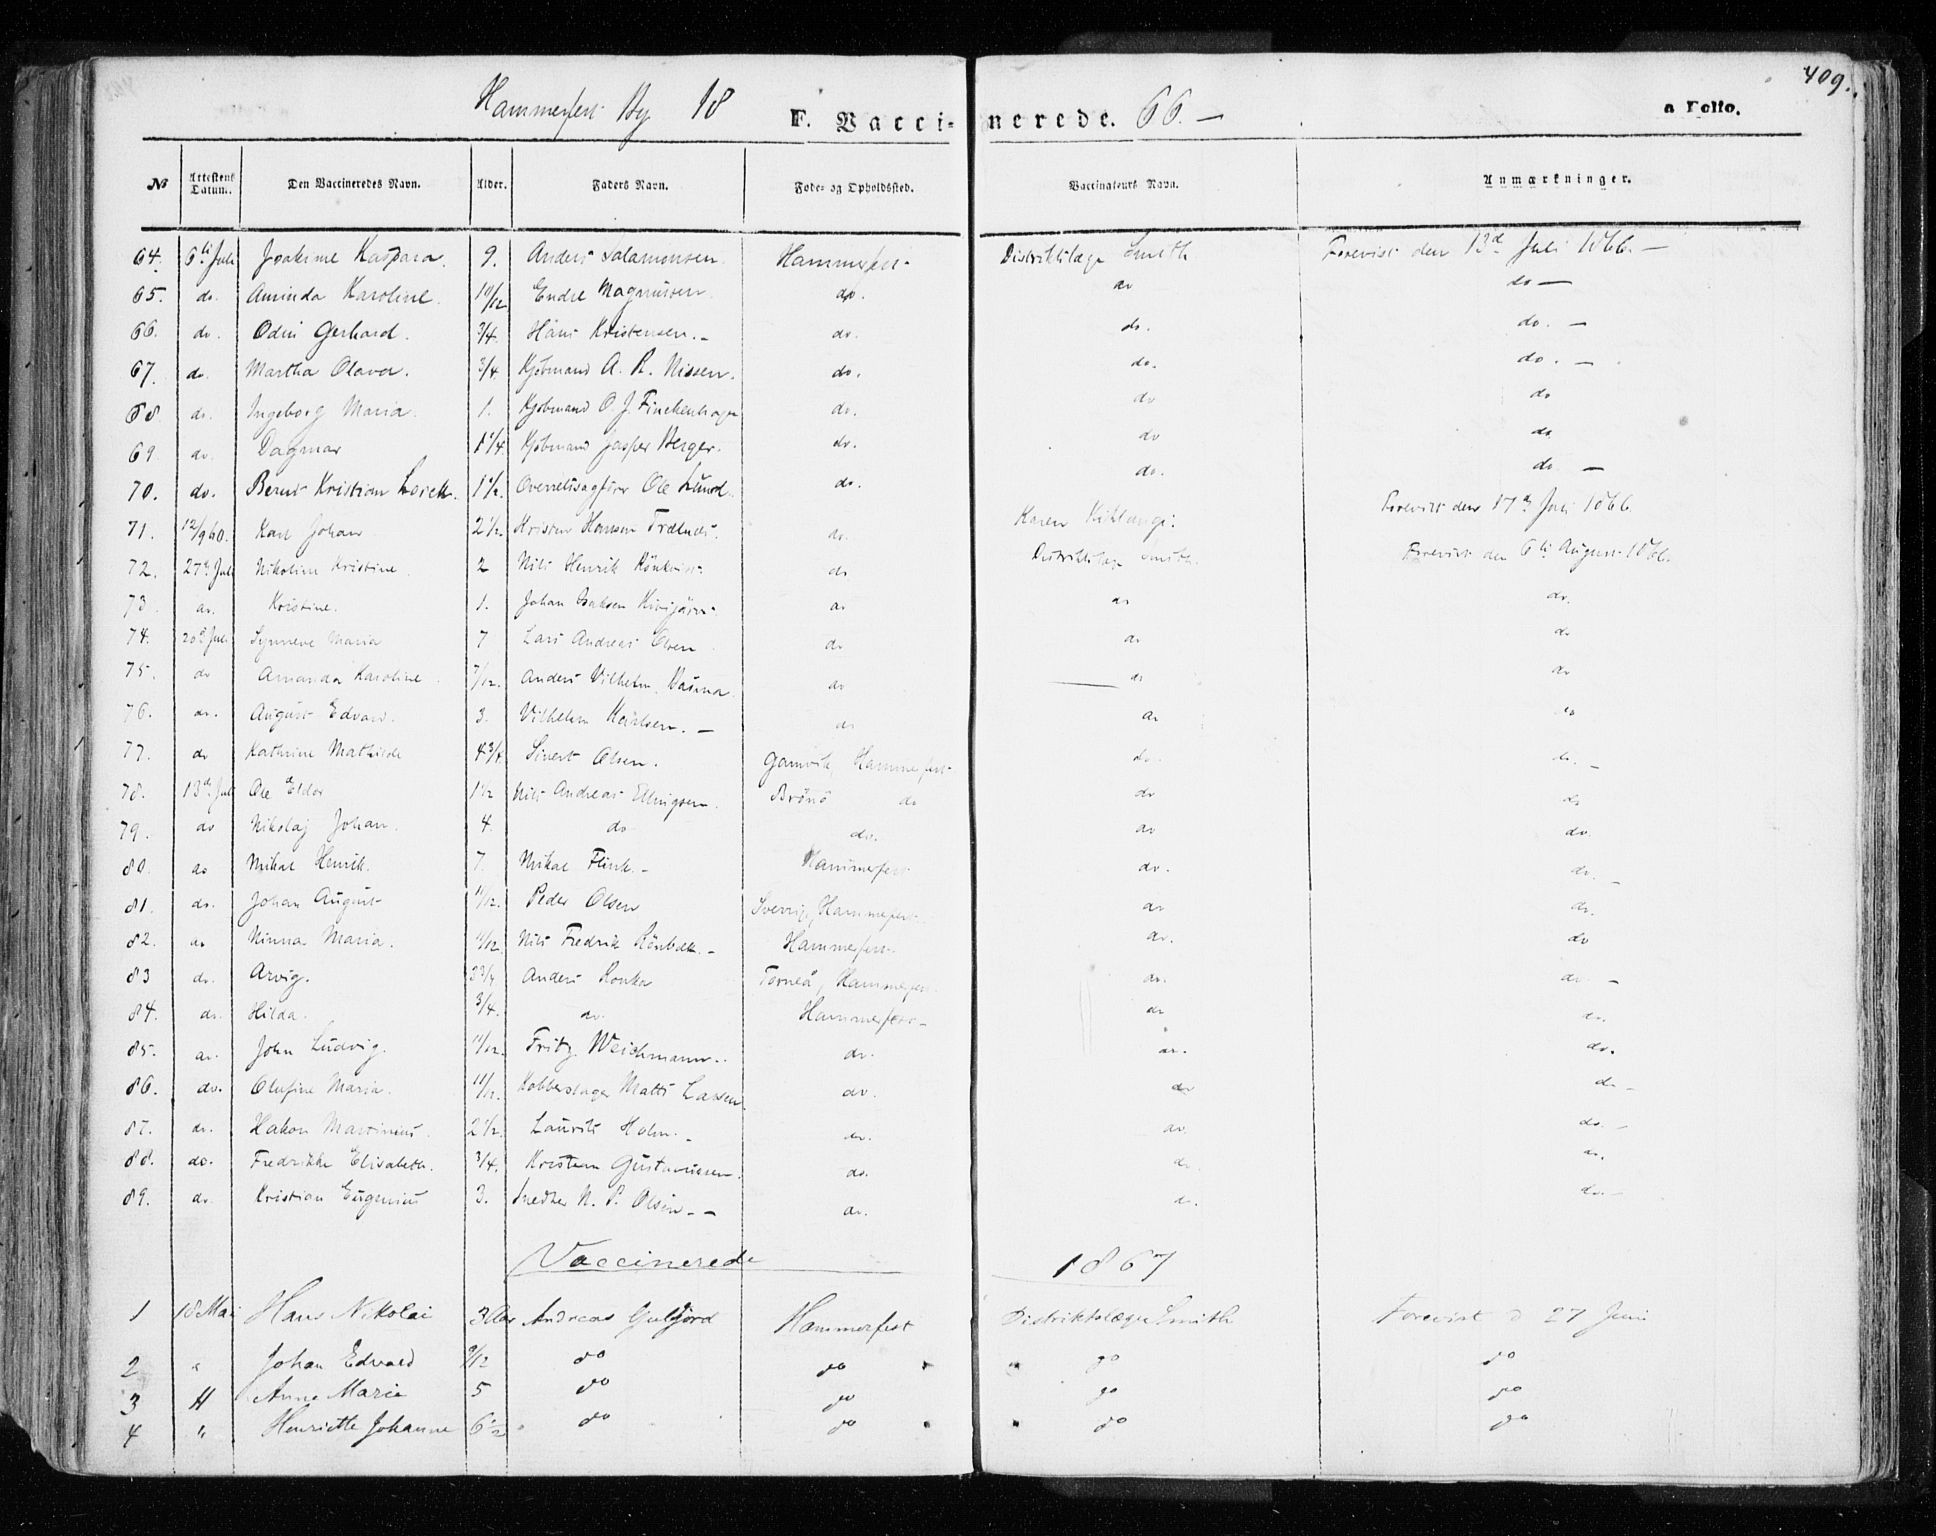 409.
Hammerfest By 18 F. Vaccinerede. 66. — a Folio.
No Attestens Datum. Den Vaccineredes Navn. Alder. Faders Navn. Føde- og Opholdssted. Vaccinateurs Navn. Anmærkninger.
64. 6te Juli Joakime Kaspara. 9. Anders Salamonsen. Hammerfest Distriktslæge Smith Forevist den 13de Juli 1866. —
65. do. Aminda Karoline. 10/12 Endre Magnussen. do. do do —
66. do. Odin Gerhard. 3/4. Hans Kristensen. — do. do. do. —
67. do. Martha Olava. 3/4 Kjøbmand A. R. Nissen. do. do. do. —
68 do. Ingeborg Maria. 1. Kjøbmand O. J. Finckenhagen do. do do
69. do. Dagmar 1 1/4. Kjøbmand Jasper Berger. do. do do
70. do. Bernt Kristian 1 1/2. Overretssagfører Ole Lund. do. do. do —
71. 12/9 60. Karl Johan 2 1/2. Kristen Hansen do. Karen Forevist den 17de Juli 1866.
72. 27de Juli Nikoline Kristine. 2 Nils Henrik do Distriktslæge Smith. Forevist den 6te August 1866.
73. do. Kristine. 1. Johan Isaksen do do do.
74. 20de Juli Synneve Maria 7 Lars Andreas Olsen do do do
75. do Amanda Karoline. 7/12. Anders Vilhelm do do do
76. do. August Edvard. 3. Vilhelm Karlsen. — do do do
77. do Kathrine Mathilde 4 3/4 Sivert Olsen. Gamvik, Hammerfest do. do. —
78. 13de Juli Ole Eldor 1 1/2 Nils Andreas Ellingsen. Brönö do do do
79. do Nikolaj Johan. 4. do do. do do.
80. do Mikal Henrik. 7. Mikal Flink. — Hammerfest do. do. —
81. do. Johan August 11/12. Peder Olsen Sverrig, Hammerfest do do.
82. do Ninna Maria. 11/12. Nils Fredrik Hammerfest do. do
83 do. Arvig. 2 3/4 Anders Torneå, Hammerfest do. do. —
84. do. Hilda. 3/4. do. Hammerfest do do.
85. do. John Ludvig. 11/12. Fritz Weichmann. do. do. do.
86. do. Olufine Maria. 11/12. Kobberslager Matts Lassen. do. do do. —
87. do. Hakon Martinius. 2 1/2. Laurits Holm. — do. do. do. —
88. do. Fredrikke Elisabeth. 3/4. Kristian Gustavussen. do. do. do.
89. do. Kristian Eugenius 3. Snedker N. P. Olsen — — do. do. do. —
Vaccinerede 1867
1 18 Mai Hans Nikolai 3 Aar Andreas Guldjord Hammerfest Distriktslæge Smith Forevist d 27 Juni
2 " Johan Edvard 9/12 do do " do do
3 H Anne Marie 5 do do do do
4 " Henriette Johanne 6 1/2 do do " do do